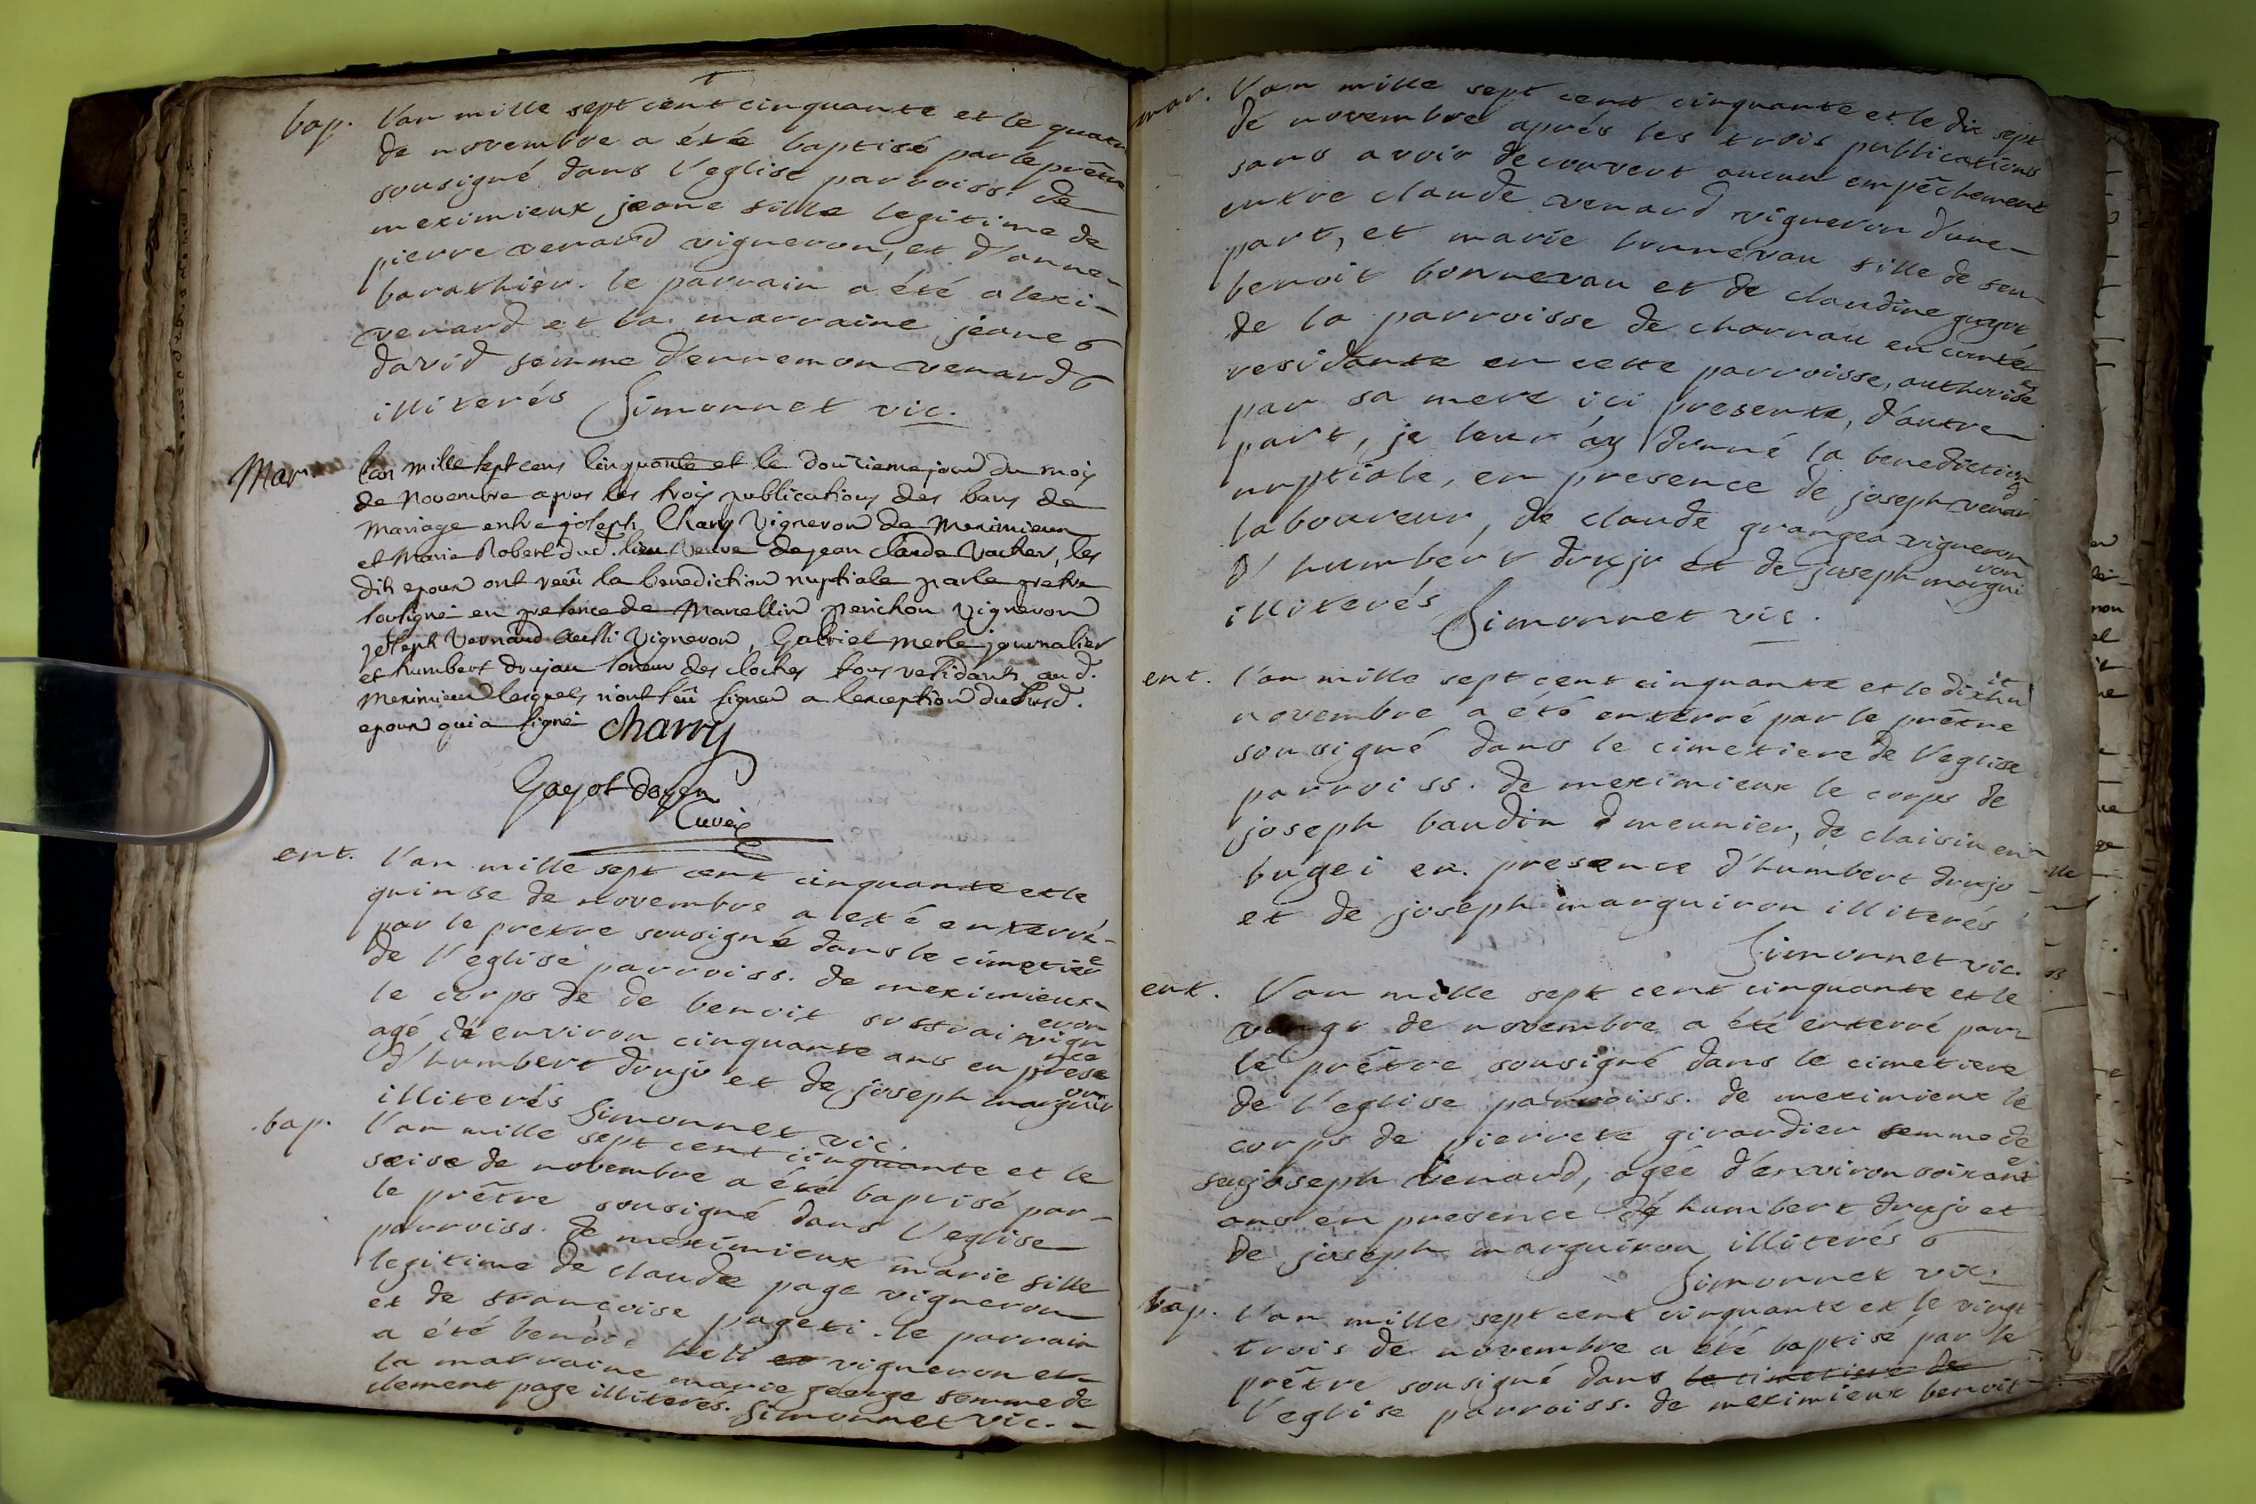 bap. l'an mille sept cent cinquante et le quatre
de novembre a été baptisé par le prêtre
sousigné dans l'eglise parroiss. de
meximieux jeane fille legitime de
pierre venard vigneron, et d'anne
barathier. le parrain a été alexi
venard et la marraine jeane
david femme d'ennemon venard
illiterés Simonnet vic.
Mar l'an mille sept cens cinquante et le douzieme jour du mois
de Novembre apres les trois publications des bans de
Mariage entre joseph Charry Vigneron de Meximieux
et Marie Robert dud. lieu Veuve de jean claude Vacher, les
dits epoux ont reçû la benediction nuptiale par le pretre
soussigné en presence de Marcellin perichon Vigneron
joseph Vernard aussi Vigneron, Gabriel Merle journalier
et humbert drujau soneur des cloches tous residants aud.
Meximieux lesquels n'ont sçû signer a l'exception dususd.
epoux qui a signé Charry
Gayot doyen
Curé
ent. l'an mille sept cent cinquante et le
quinse de novembre a eté enterré
par le pretre sousigné dans le cimetiere
de l'eglise parroiss. de meximieux
le corps de de benoit vigneron
agé d'environ cinquante ans en presence
d'humbert drujo et de joseph marguiron
illiterés Simonnet vic.
bap. l'an mille sept cent cinquante et le
seise de novembre a été baptisé par
le prêtre sousigné dans l'eglise
parroiss. de meximieux marie fille
legitime de claude page vigneron
et de françoise pageti. le parrain
a été benoit vigneron et
la marraine marie george femme de
clement page illiteres. Simonnet vic.
mar. l'an mille sept cent cinquante et le dix sept
de novembre aprés les trois publications
sans avoir decouvert aucun empêchement
entre claude venard vigneron d'une
part, et marie bonnevau fille de feu
benoit bonnevau et de claudine guyot
de la parroisse de charnau en comté
residante en cette parroisse, authorisée
par sa mere ici presente, d'autre
part, je leur ay donné la benediction
nuptiale, en presence de joseph venard
laboureur, de claude grangea vigneron
d'humbert drujo et de joseph marguiron
illiterés Simonnet vic.
ent. l'an mille sept cent cinquante et le dixhuit
novembre a été enterré par le prêtre
sousigné dans le cimetiere de l'eglise
parroiss. de meximieux le corps de
joseph baudin meunier, de claisin en
bugei en presence d'humbert drujo
et de joseph marguiron illiterés
Simonnet vic.
ent. l'an mille sept cent cinquante et le
vingt de novembre a été enterré par
le prêtre sousigné dans le cimetiere
de l'eglise parroiss. de meximieux le
corps de pierrete girardier femme de
feu joseph venard, agée d'environ soixante
ans en presence d'humbert drujo et
de joseph marguiron illiterés
Simonnet vic.
bap. l'an mille sept cent cinquante et le vingt
trois de novembre a été baptisé par le
prêtre sousigné dans le cimetiere de
l'eglise parroiss. de meximieux benoit